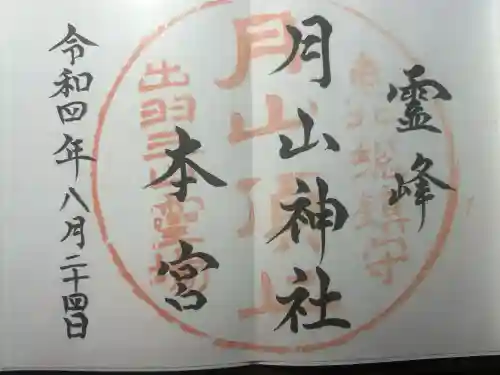 霊峰
月山神社
本宮
令和四年八月二十四日
月山頂上
出羽三山霊場